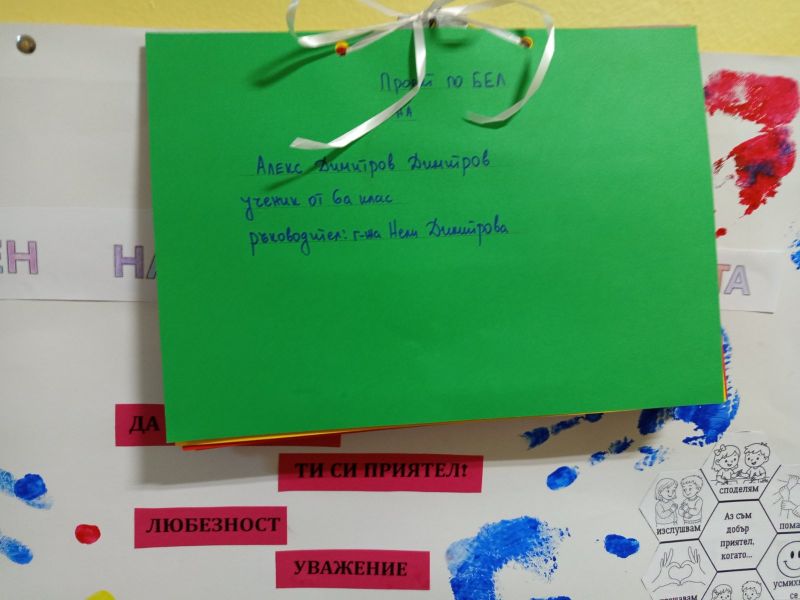 Проект по БЕЛ
на
Алекс Димитров Димитров
ученик от 6а клас
ръководител: г-жа Нели Димитрова
ЕН НА ТА
ДА
ТИ СИ ПРИЯТЕЛ!
ЛЮБЕЗНОСТ
УВАЖЕНИЕ
споделям
изслушвам
Аз съм
добър
приятел,
когато...
пома
усмих
се